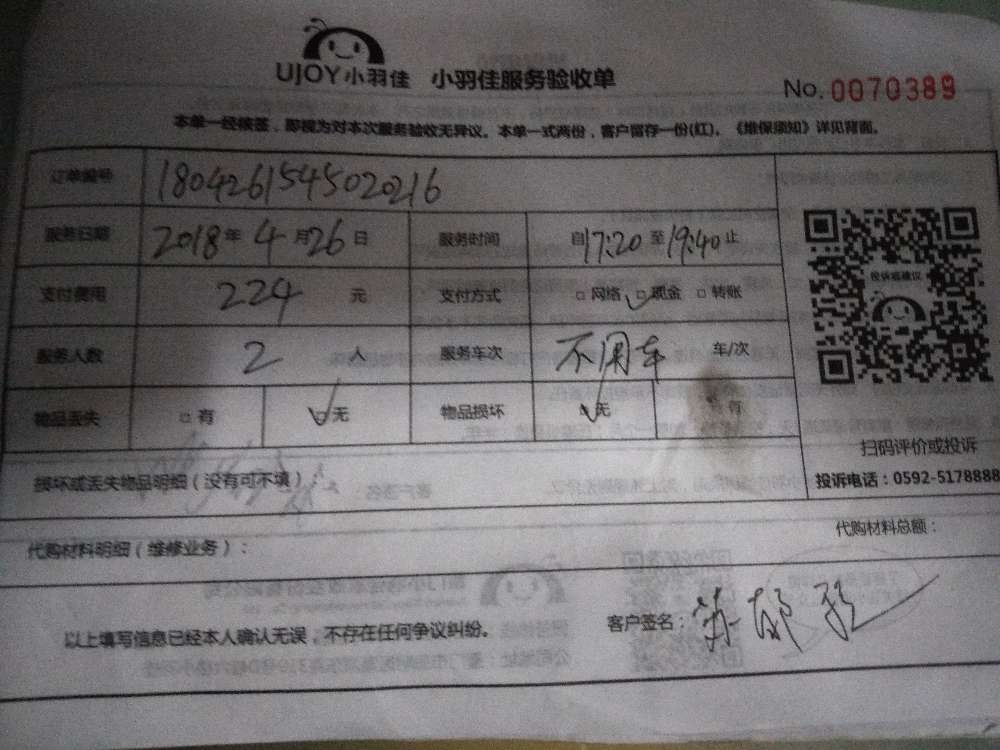 UJOY小羽佳 小羽佳服务验收单
No. 0070389
本单一经核签，即视为对本次服务验收无异议。本单一式两份，客户留存一份(红)。《维保须知》详见背面。
订单编号 1804261545020216
服务日期 2018年4月26日 服务时间 自17:20至19:40止
支付费用 224 元 支付方式 □网络 □现金 □转账
投诉或建议
服务人数 2 人 服务车次 不用车 车/次
物品丢失 □有 □无 物品损坏 □无 □有
扫码评价或投诉
损坏或丢失物品明细（没有可不填）：
投诉电话：0592-5178888
代购材料明细（维修业务）： 代购材料总额：
以上填写信息已经本人确认无误，不存在任何争议纠纷。 客户签名：